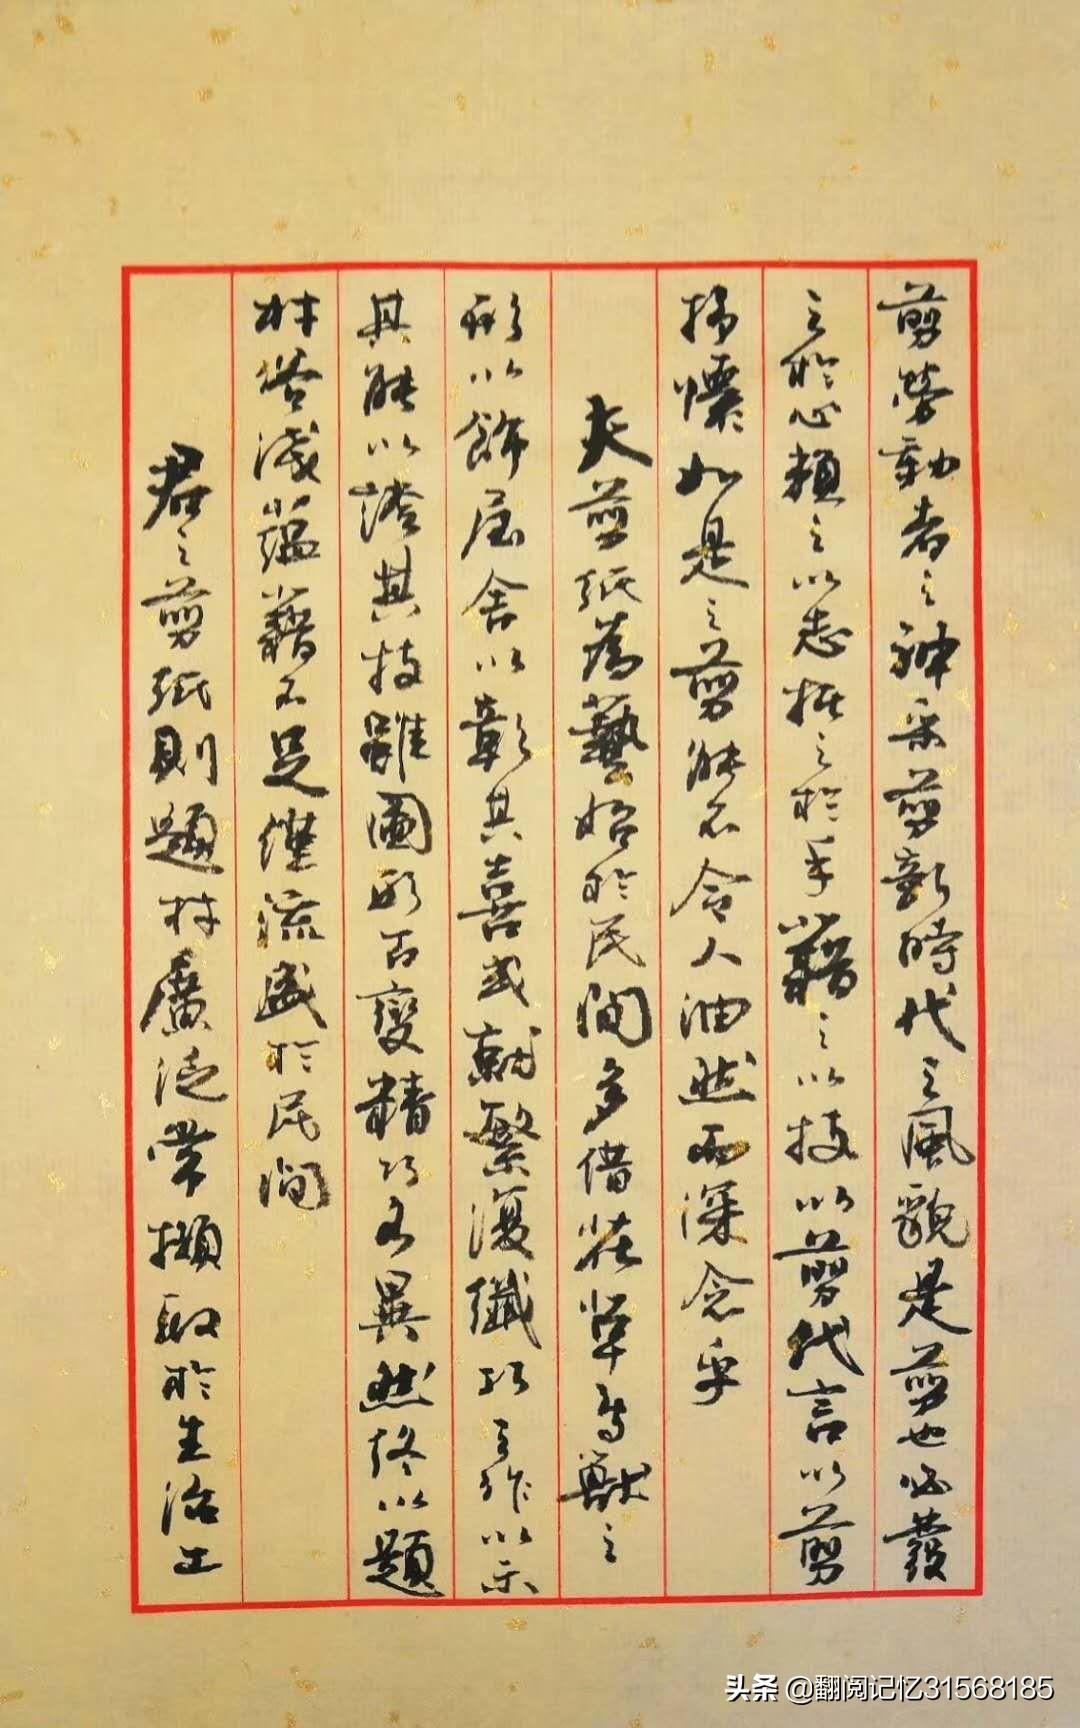 剪勞動者之神采剪新時代之風貌是剪也必發
之於心賴之以志握之於手藉之以技以剪代言以剪
抒懷如是之剪能不令人油然而深念乎
夫剪紙為藝始於民間多借花草鳥獸之
形以飾屋舍以彰其喜或翻繁復纖巧之作以示
其能以誇其技雖圖形百變精巧各異然終以題
材窘淺蘊藉不足僅流盛於民間
君之剪紙則題材廣泛常擷取於生活土
头条 @翻阅记忆31568185